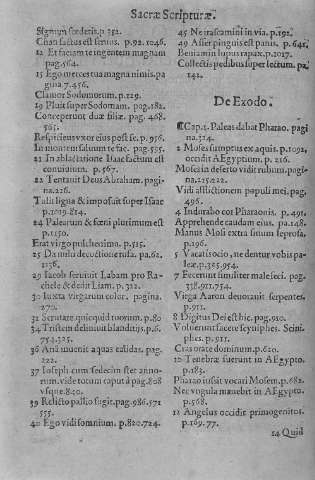 Sacræ Scripturæ.
Signum fœderis. p. 252.
Cham factus est seruus. p. 92. 1046.
12 Et faciam te in gentem magnam
pag. 564.
15 Ego merces tua magna nimis. pa
gina 7. 456.
Clamor Sodomorum. p. 129.
19 Pluit super Sodomam. pag. 182.
Conceperunt duæ filiæ. pag. 468.
565.
Respiciens vxor eius post se. p. 956.
In monte saluum te fac. pag. 535.
21 In ablactatione Isaac factum est
conuiuium. p. 567.
22 Tentauit Deus Abraham. pagi-
na. 226.
Tulit ligna & imposuit super Isaac
p. 1019. 814.
24 Palearum & fœni plurimum est
p. 1150.
Erat virgo pulcherrima. p. 515.
25 Da mihi de coctione rufa. pa. 62.
1136.
29 Iacob seruiuit Labam pro Ra-
chele & dedit Liam. p. 312.
30 Iuxta virgarum color. pagina.
270.
31 Scrutare quicquid tuorum. p. 80
34 Tristem deliniuit blanditijs. p. 6.
754. 325.
36 Ana inuenit aquas calidas. pag.
222.
37 Ioseph cum sedecim esset anno-
rum. vide totum caput à pag. 808
vsque. 840.
39 Relicto pallio fugit. pag. 986. 571
555.
40 Ego vidi somnium. p. 820. 724.
45 Ne irascamini in via. p. 192.
49 Asser pinguis est panis. p. 641.
Beniamin lupus rapax. p. 1017.
Collectis pedibus super lectum. pa.
142.
De Exodo.
Cap. 1. Paleas dabat Pharao. pagi
na. 314.
2 Moses sumptus ex aquit. p. 1092,
occidit AEgyptium. p. 216.
Moses in deserto vidit rubum. pagi-
na. 215. & 22.
Vidi afflictionem populi mei. pag,
496.
4 Indurabo cor Pharaonis. p. 491.
Apprehende caudam eius. pa. 148.
Manus Mosi extra sinum leprosa.
p. 196.
5 Vacatis ocio, ne dentur vobis pa-
leæ. p. 325. 954.
7 Fecerunt similiter malefici. pag.
338. 911. 754.
Virga Aaron deuorauit serpentes.
p. 911.
8 Digitus Dei est hic. pag. 910.
Voluerunt facere scyniphes. Scini-
phes. p. 911.
Cras orate dominum. p. 620.
10 Tenebræ fuerunt in AEgypto.
p. 183.
Pharao iussit vocari Mosem. p. 682.
Nec vngula manebit in AEgypto.
p. 568.
12 Angelus occidit primogenitos.
p. 169. 77.
14 Quid